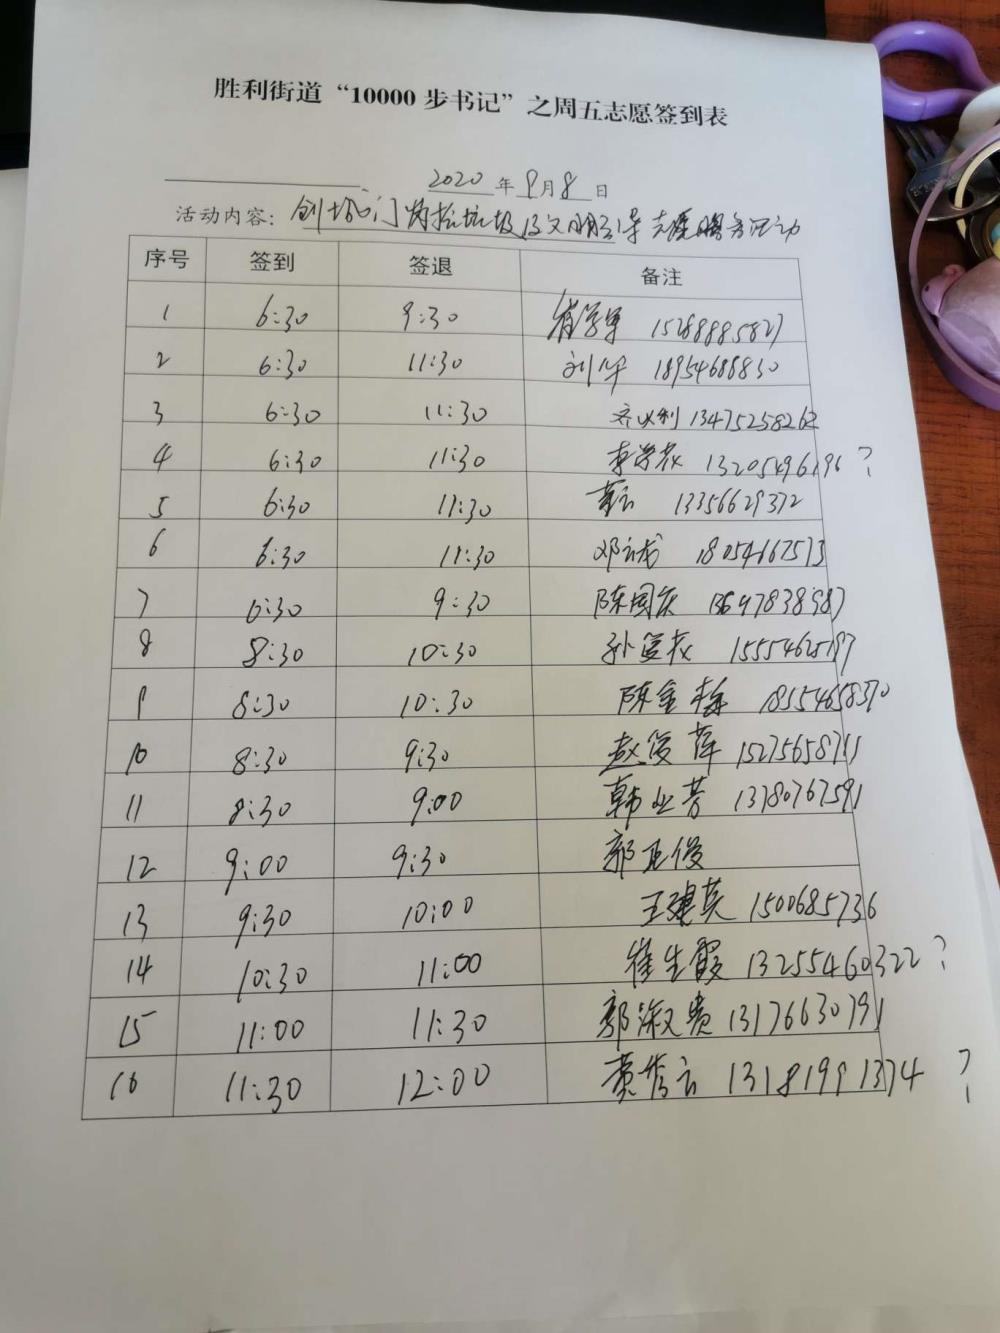 胜利街道“10000步书记”之周五志愿签到表
2020年9月8日
活动内容：创城 门岗捡垃圾及文明引导志愿服务活动
序号 签到 签退 备注
1 6:30 9:30 15288885827
2 6:30 11:30 刘华 18954688830
3 6:30 11:30 齐以利 13475258262
4 6:30 11:30 李学荗 13205496196 ?
5 6:30 11:30 13356629372
6 6:30 11:30 邓云龙 18054667573
7 6:30 9:30 陈国庆 13697838987
8 8:30 10:30 孙 15554625197
9 8:30 10:30 陈金 18554658370
10 8:30 9:30 赵俊萍 15275658711
11 8:30 9:00 韩业芳 13780767591
12 9:00 9:30 郭卫俊
13 9:30 10:00 王建英 1500685736
14 10:30 11:00 崔生霞 13255460322 ?
15 11:00 11:30 郭淑贵 13176630791
16 11:30 12:00 黄秀云 13181991374 ?